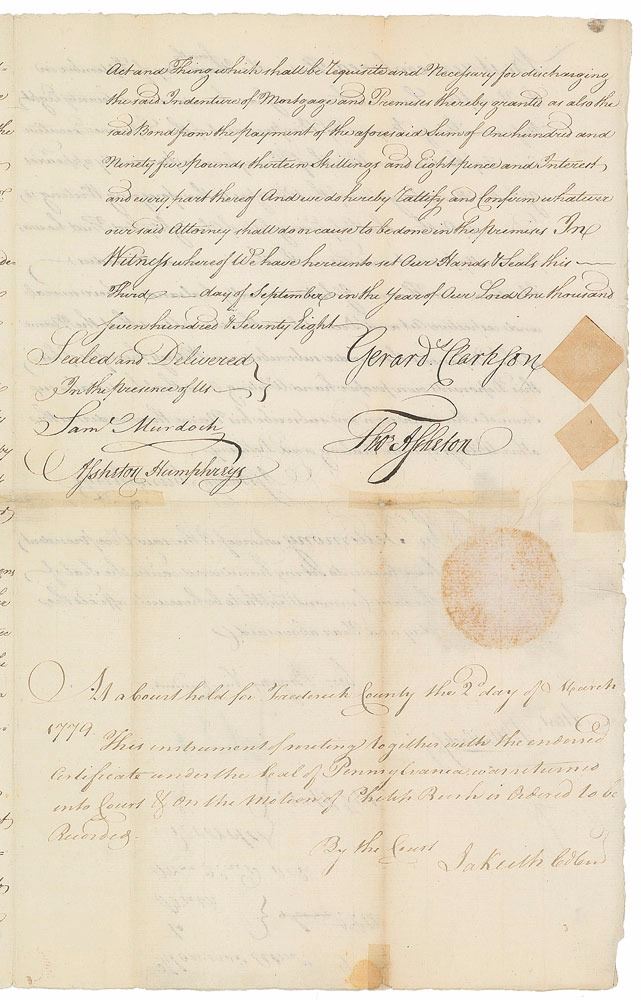 Act and Thing which shall be requisite and Necessary for discharging
the said Indenture of Mortgage and Premises thereby granted as also the
said Bond from the payment of the aforesaid Sum of One hundred and
Ninety five pounds thirteen Shillings and Eight pence and Interest
and every part thereof And we do hereby Rattify and Confirm whatever
our said Attorney shall do or cause to be done in the premises In
Witness whereof We have hereunto set Our Hands & Seals this
Third day of September in the Year of Our Lord One thousand
seven hundred & Seventy Eight
Sealed and Delivered
In the presence of Us
Gerard. Clarkson
Saml Murdoch
Thos Assheton
Assheton Humphreys
At a Court held for Frederick County the 2d day of March
1779
This instrument of writing together with the endorsed
Certificate under the Seal of Pennsylvania was returned
into Court & on the Motion of Philip Bush is Ordered to be
Recorded.
By the Court
Ja Keith